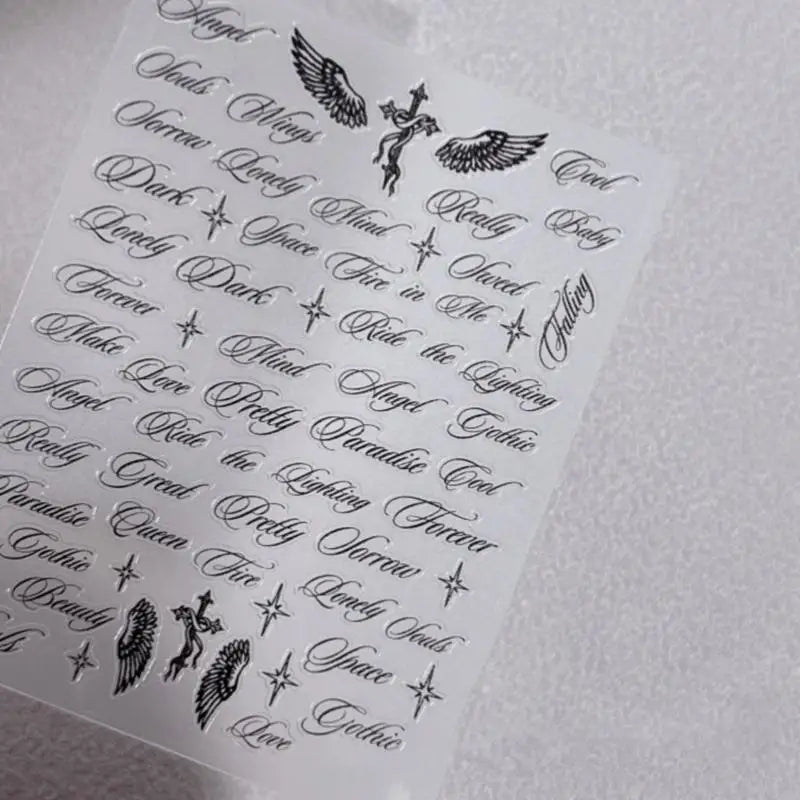 Angel
Souls Wings
Cool
Sorrow Lonely Mind Really Baby
Dark Space Fire in Me Sweet
Falling
Lonely Dark Ride the Lighting
Forever Mind Angel Gothic
Make Love Pretty Paradise Cool
Angel Ride the Lighting Forever
Really Great Pretty Sorrow
Paradise Queen Fire Lonely Souls
Gothic Space
Beauty Gothic
Love